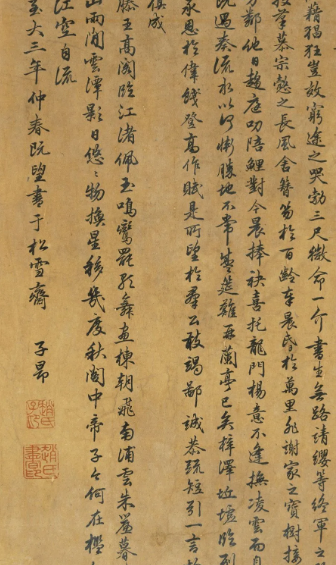 籍猖狂豈效窮途之哭勃三尺微命一介書生無路請纓等終軍之
投筆慕宗愨之長風舍簪笏於百齡奉晨昏於萬里非謝家之寶樹接
芳鄰他日趨庭叨陪鯉對今晨捧袂喜托龍門楊意不逢撫凌雲而自
既遇奏流水以何慚勝地不常盛筵難再蘭亭已矣梓澤坵墟臨別
承恩於偉餞登高作賦是所望於群公敢竭鄙誠恭疏短引一言
俱成
滕王高閣臨江渚佩玉鳴鸞罷歌舞畫棟朝飛南浦雲朱簾暮
山雨閒雲潭影日悠〻物換星移幾度秋閣中帝子今何在檻
江空自流
至大三年仲春既望書于松雪齋 子昂